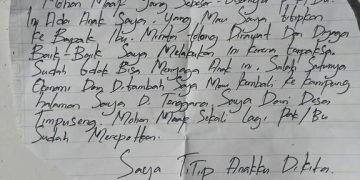 Mohon Maaf Yang Sebesar - Besarnya
Ini Ada Anak Saya. Yang Mau Saya titipkan
Ke Bapak Ibu. Minta tolong Dirawat Dan Dijaga
Baik-Baik Saya Melakukan Ini Karena terpaksa
Sudah tidak Bisa Menjaga Anak ini. Salah Satunya
Ekonomi Dan Ditambah Saya Mau Kembali Ke Kampung
Halaman Saya Di Tenggara. Saya Dari Desa
Mohon Maaf Sekali Lagi Pak/Bu
Sudah Merepotkan.
Saya TiTip Anakku Dikita.